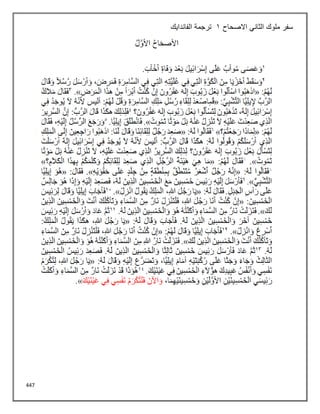 سفر ملوك الثانى الاصحاح 1 ترجمة الفاندايك
الأصحَاحُ الأَوَّلُ
1وَعَصَى مُوآبُ عَلَى إِسْرَائِيلَ بَعْدَ وَفَاةِ أَخْآبَ.
2وَسَقَطَ أَخَزْيَا مِنَ الْكُوَّةِ الَّتِي فِي عُلِّيَّتِهِ الَّتِي فِي السَّامِرَةِ فَمَرِضَ، وَأَرْسَلَ رُسُلاً وَقَالَ
لَهُمُ: «اذْهَبُوا اسْأَلُوا بَعْلَ زَبُوبَ إِلهَ عَقْرُونَ إِنْ كُنْتُ أَبْرَأُ مِنْ هذَا الْمَرَضِ». 3فَقَالَ مَلاَكُ
الرَّبِّ لإِيلِيَّا التِّشْبِيِّ: «قُمِ اصْعَدْ لِلِقَاءِ رُسُلِ مَلِكِ السَّامِرَةِ وَقُلْ لَهُمْ: أَلَيْسَ لأَنَّهُ لاَ يُوجَدُ فِي
إِسْرَائِيلَ إِلهٌ، تَذْهَبُونَ لِتَسْأَلُوا بَعْلَ زَبُوبَ إِلهَ عَقْرُونَ؟ 4فَلِذلِكَ هكَذَا قَالَ الرَّبُّ: إِنَّ السَّرِيرَ
الَّذِي صَعِدْتَ عَلَيْهِ لاَ تَنْزِلُ عَنْهُ بَلْ مَوْتًا تَمُوتُ». فَانْطَلَقَ إِيلِيَّا. 5وَرَجَعَ الرُّسُلُ إِلَيْهِ، فَقَالَ
لَهُمْ: «لِمَاذَا رَجَعْتُمْ؟» 6فَقَالُوا لَهُ: «صَعِدَ رَجُلٌ لِلِقَائِنَا وَقَالَ لَنَا: اذْهَبُوا رَاجِعِينَ إِلَى الْمَلِكِ
الَّذِي أَرْسَلَكُمْ وَقُولُوا لَهُ: هكَذَا قَالَ الرَّبُّ: أَلَيْسَ لأَنَّهُ لاَ يُوجَدُ فِي إِسْرَائِيلَ إِلهٌ أَرْسَلْتَ
لِتَسْأَلَ بَعْلَ زَبُوبَ إِلهَ عَقْرُونَ؟ لِذلِكَ السَّرِيرُ الَّذِي صَعِدْتَ عَلَيْهِ، لاَ تَنْزِلُ عَنْهُ بَلْ مَوْتًا
تَمُوتُ». 7فَقَالَ لَهُمْ: «مَا هِيَ هَيْئَةُ الرَّجُلِ الَّذِي صَعِدَ لِلِقَائِكُمْ وَكَلَّمَكُمْ بِهذَا الْكَلاَمِ؟»
8فَقَالُوا لَهُ: «إِنَّهُ رَجُلٌ أَشْعَرُ مُتَنَطِّقٌ بِمِنْطَقَةٍ مِنْ جِلْدٍ عَلَى حَقْوَيْهِ». فَقَالَ: «هُوَ إِيلِيَّا
التِّشْبِيُّ». 9فَأَرْسَلَ إِلَيْهِ رَئِيسَ خَمْسِينَ مَعَ الْخَمْسِينَ الَّذِينَ لَهُ، فَصَعِدَ إِلَيْهِ وَإِذَا هُوَ جَالِسٌ
عَلَى رَأْسِ الْجَبَلِ. فَقَالَ لَهُ: «يَا رَجُلَ اللهِ، الْمَلِكُ يَقُولُ انْزِلْ». 10فَأَجَابَ إِيلِيَّا وَقَالَ لِرَئِيسِ
الْخَمْسِينَ: «إِنْ كُنْتُ أَنَا رَجُلَ اللهِ، فَلْتَنْزِلْ نَارٌ مِنَ السَّمَاءِ وَتَأْكُلْكَ أَنْتَ وَالْخَمْسِينَ الَّذِينَ
لَكَ». فَنَزَلَتْ نَارٌ مِنَ السَّمَاءِ وَأَكَلَتْهُ هُوَ وَالْخَمْسِينَ الَّذِينَ لَهُ. 11ثُمَّ عَادَ وَأَرْسَلَ إِلَيْهِ رَئِيسَ
خَمْسِينَ آخَرَ وَالْخَمْسِينَ الَّذِينَ لَهُ. فَأَجَابَ وَقَالَ لَهُ: «يَا رَجُلَ اللهِ، هكَذَا يَقُولُ الْمَلِكُ:
أَسْرِعْ وَانْزِلْ». 12فَأَجَابَ إِيلِيَّا وَقَالَ لَهُمْ: «إِنْ كُنْتُ أَنَا رَجُلَ اللهِ فَلْتَنْزِلْ نَارٌ مِنَ السَّمَاءِ
وَتَأْكُلْكَ أَنْتَ وَالْخَمْسِينَ الَّذِينَ لَكَ». فَنَزَلَتْ نَارُ اللهِ مِنَ السَّمَاءِ وَأَكَلَتْهُ هُوَ وَالْخَمْسِينَ الَّذِينَ
لَهُ. 13ثُمَّ عَادَ فَأَرْسَلَ رَئِيسَ خَمْسِينَ ثَالِثًا وَالْخَمْسِينَ الَّذِينَ لَهُ. فَصَعِدَ رَئِيسُ الْخَمْسِينَ
الثَّالِثُ وَجَاءَ وَجَثَا عَلَى رُكْبَتَيْهِ أَمَامَ إِيلِيَّا، وَتَضَرَّعَ إِلَيْهِ وَقَالَ لَهُ: «يَا رَجُلَ اللهِ، لِتُكْرَمْ
نَفْسِي وَأَنْفُسُ عَبِيدِكَ هؤُلاَءِ الْخَمْسِينَ فِي عَيْنَيْكَ. 14هُوَذَا قَدْ نَزَلَتْ نَارٌ مِنَ السَّمَاءِ وَأَكَلَتْ
رَئِيسَيِ الْخَمْسِينِينَ الأَوَّلَيْنِ وَخَمْسِينَيْهِمَا، وَالآنَ فَلْتُكْرَمْ نَفْسِي فِي عَيْنَيْكَ».
447